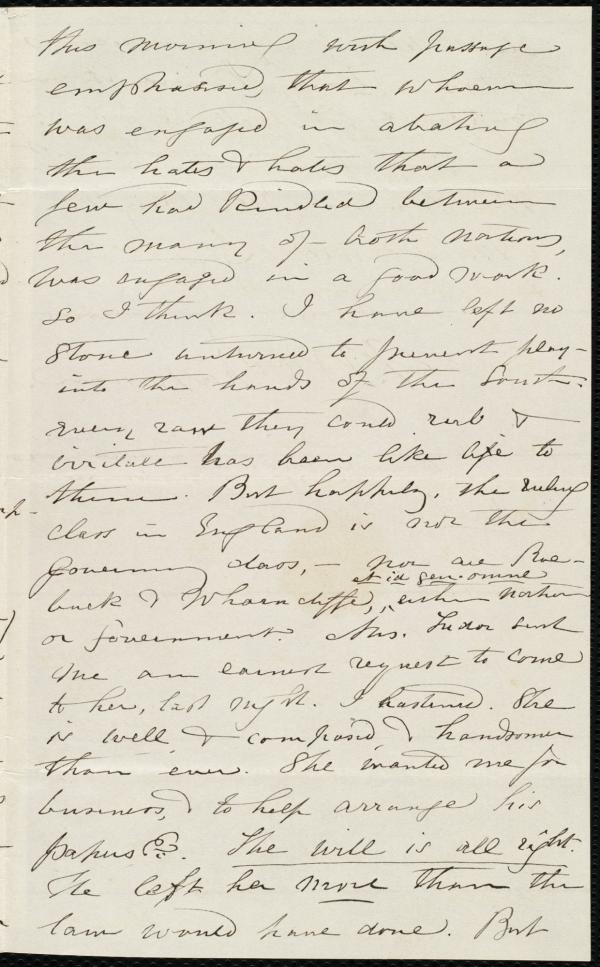 this morning with passage
emphasised, that whoever
was engaged in abating
the hates & hates that a
few had kindled between
the many of both nations,
was engaged in a good work.
So I think. I have left no
stone unturned to prevent play-
into the hands of the South.
every raw they could rub &
irritate has been like life to
them. But happily, the ruling
class in England is not the
governing class, – nor are Roe-
buck & Wharncliffe, et id gen. omne, either nation
or government. Mrs. Tudor sent
me an earnest request to come
to her, last night. I hastened. She
is well & composed, & handsomer
than ever. She wanted me for
business, & to help arrange his
papers &c. The will is all right.
He left her more than the
law would have done. But